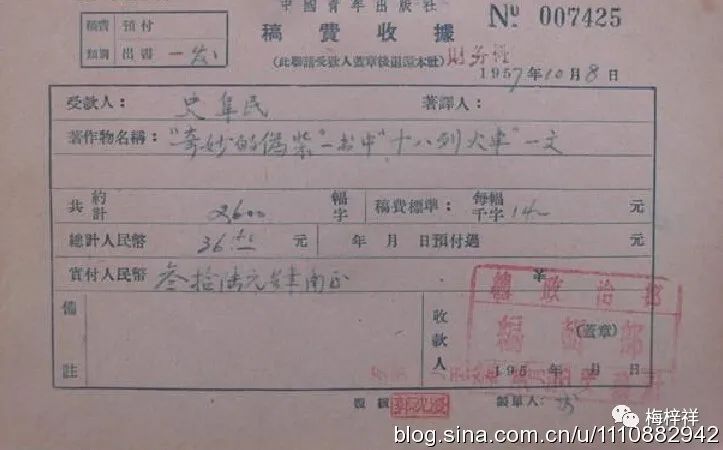 中國青年出版社
稿費收據
№ 007425
稿費 預付
類別 出書 一次
(此聯請受款人蓋章後退還本社)
1957年10月8日
受款人: 史阜民 著譯人:
著作物名稱: "奇妙的偽裝"一書中"十八列火車"一文
共約計 2600 幅字 稿費標準: 每幅千字 14— 元
總計人民幣 36 元 年 月 日預付過 元
實付人民幣 叁拾陸元
備註
收款人
(蓋章)
195 年 月 日
總政治部
編輯部
製單人:
梅梓祥
blog.sina.com.cn/u/1110882942